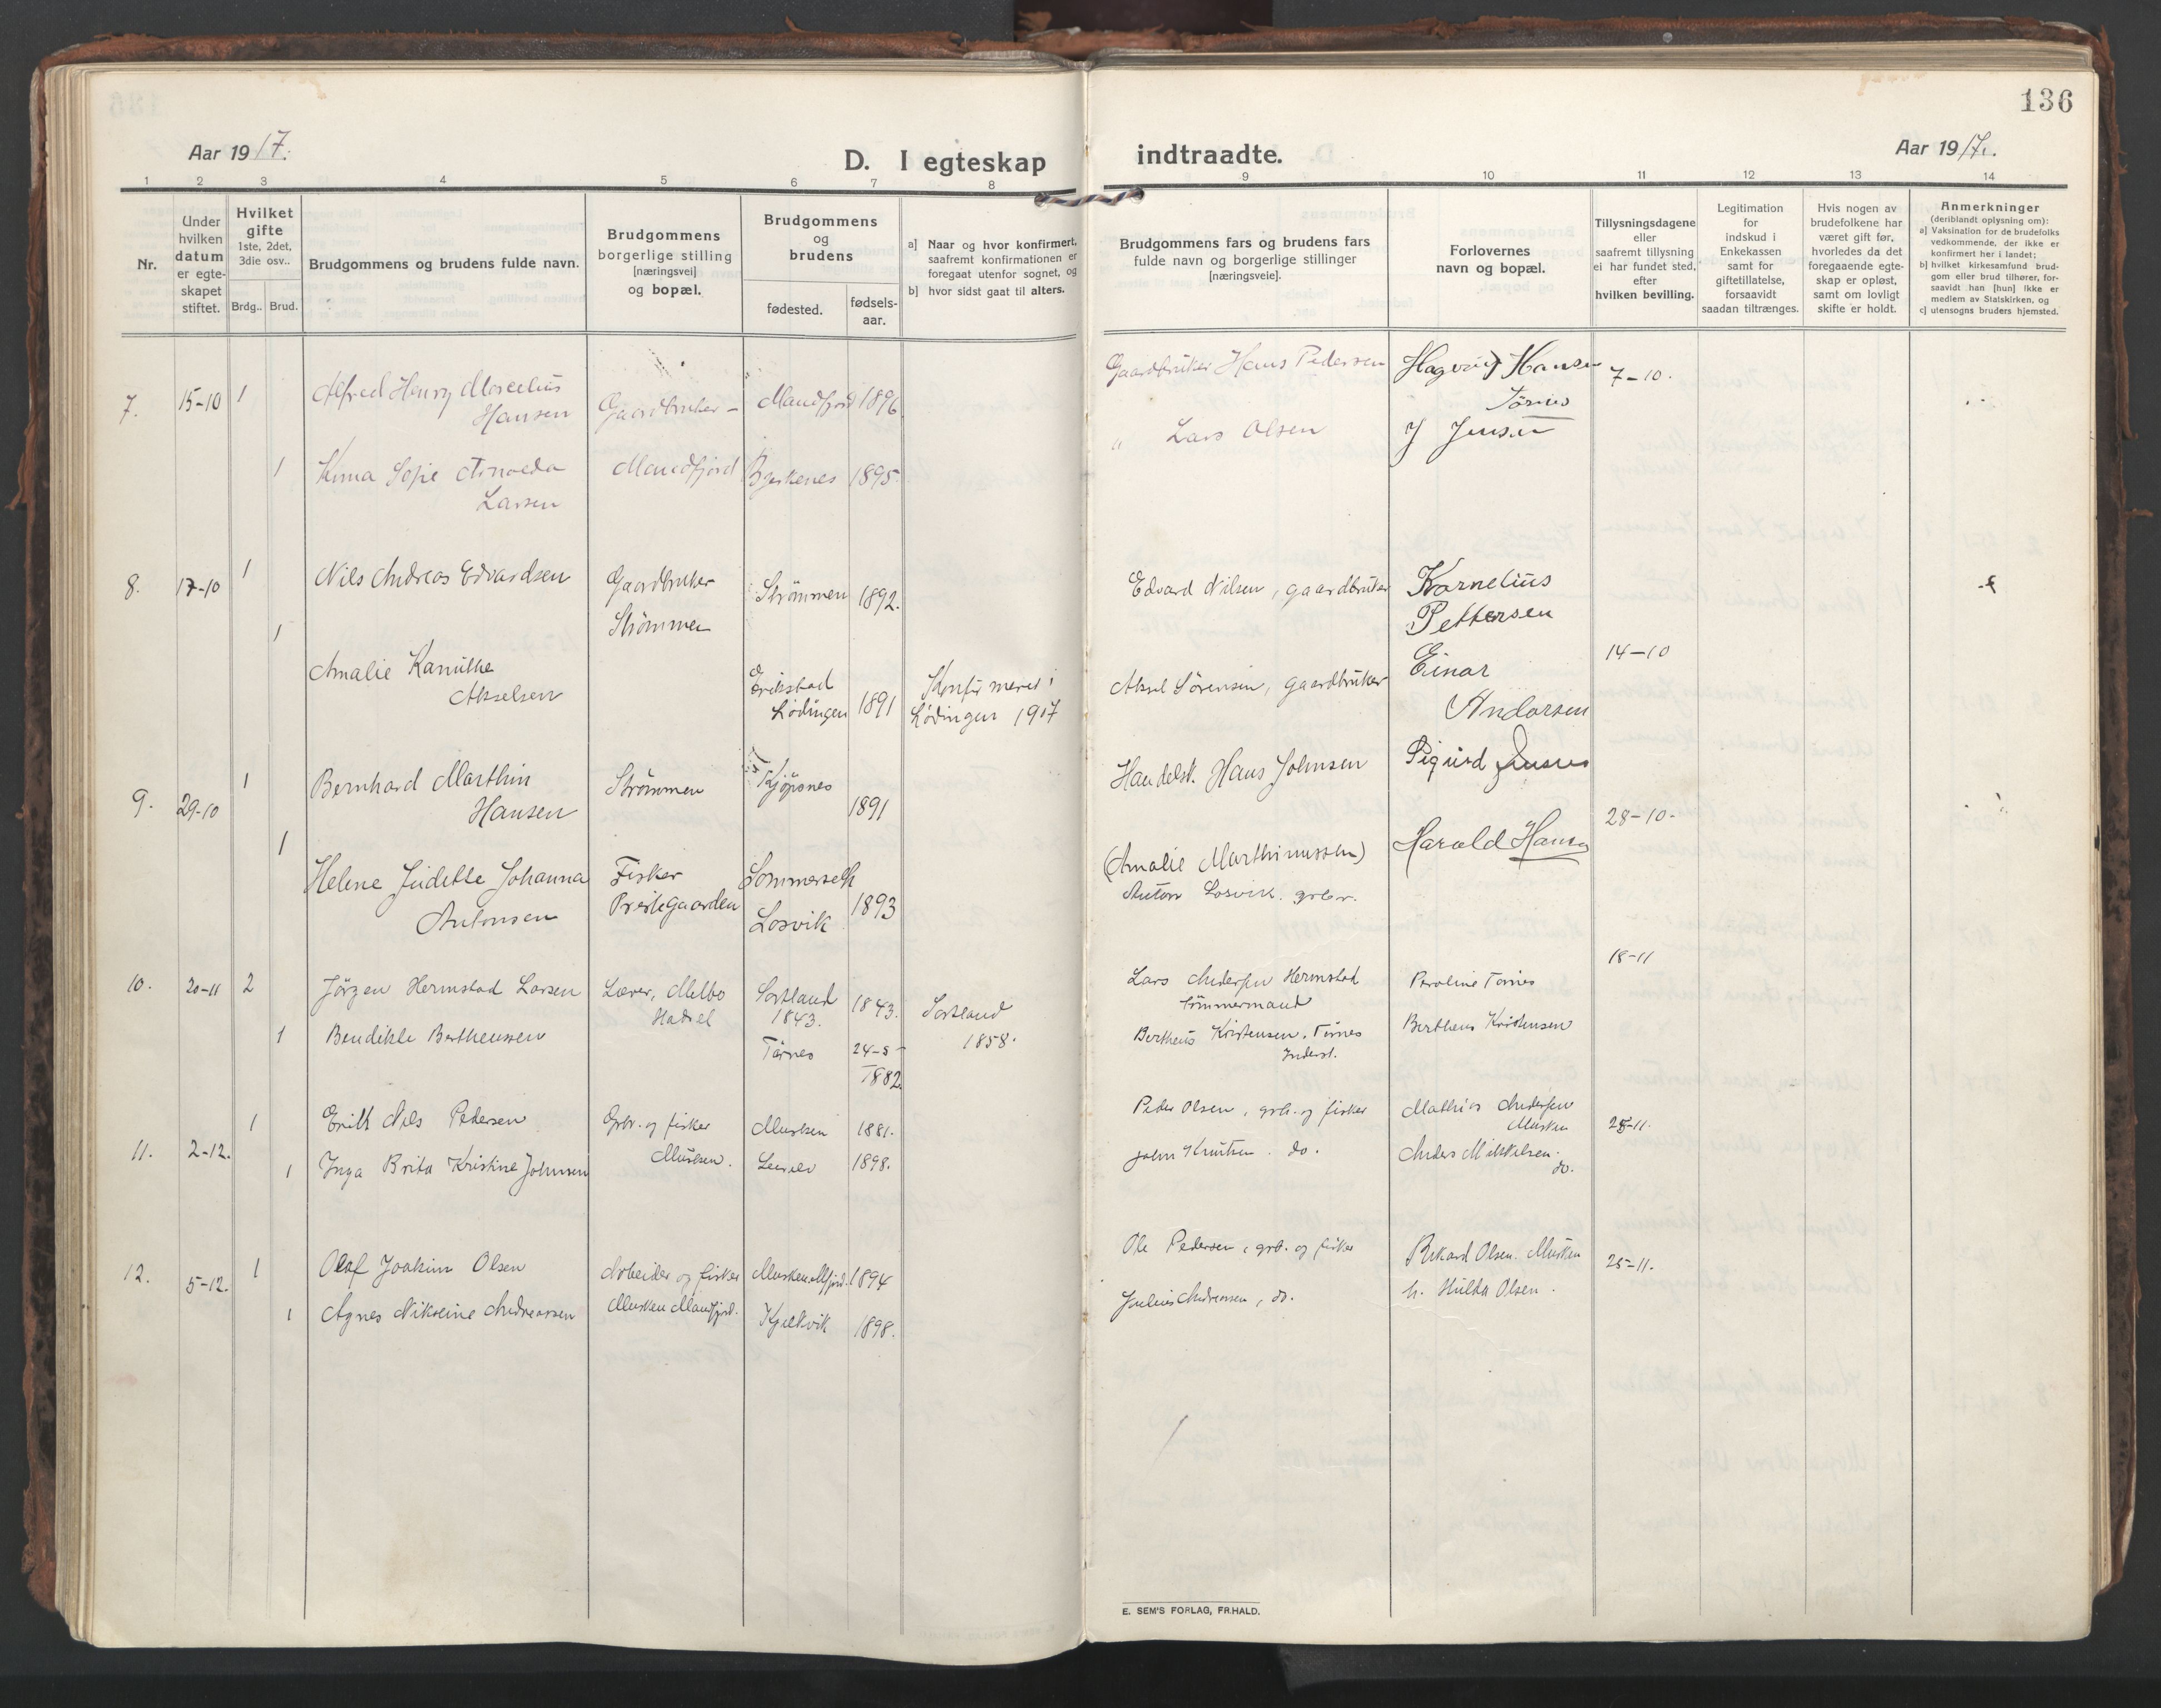 136
Aar 1917.
D. I egteskap indtraadte.
Aar 1917.
1 2 3 4 5 6 7 8 9 10 11 12 13 14
Nr.
Under
hvilken
datum
er egte-
skapet
stiftet.
Hvilket
gifte
1ste, 2det,
3die osv..
Brdg.. Brud.
Brudgommens og brudens fulde navn.
Brudgommens
borgerlige stilling
[næringsvei]
og bopæl.
Brudgommens
og
brudens
fødested.
fødsels-
aar.
a] Naar og hvor konfirmert,
saafremt konfirmationen er
foregaat utenfor sognet, og
b] hvor sidst gaat til alters.
Brudgommens fars og brudens fars
fulde navn og borgerlige stillinger
[næringsveie].
Forlovernes
navn og bopæl.
Tillysningsdagene
eller
saafremt tillysning
ei har fundet sted,
efter
hvilken bevilling.
Legitimation
for
indskud i
Enkekassen
samt for
giftetillatelse,
forsaavidt
saadan tiltrænges.
Hvis nogen av
brudefolkene har
været gift før,
hvorledes da det
foregaaende egte-
skap er opløst,
samt om lovligt
skifte er holdt.
Anmerkninger
(deriblandt oplysning om):
a] Vaksination for de brudefolks
vedkommende, der ikke er
konfirmert her i landet;
b] hvilket kirkesamfund brud-
gom eller brud tilhører, for-
saavidt han [hun] ikke er
medlem av Statskirken, og
c] utensogns bruders hjemsted.
7. 15-10 1 Alfred Henry Marcelius
Hansen
Gaardbruker -
Mandfjord 1896
Gaardbruker Hans Pedersen
Hansen
Tørnes
7-10.
1 Anna Sofie
Larsen
Mandfjord
1895.
" Lars Olsen
J Jensen
8. 17-10 1 Nils Andreas Edvardsen
Gaardbruker
Strömmen
Strömmen 1892.
Edvard Nilsen, gaardbruker
Kornelius
Pettersen
14-10
1 Amalie Kamilla
Akselsen
Erikstad
Lödingen 1891
Konfirmeret i
Lödingen 1907
Aksel Sörensen, gaardbruker
Einar
Andorsen
9. 29-10 1 Bernhard Marthin
Hansen
Strömmen
Kjöpsnes
1891
Handelsk. Hans Johnsen
Sigurd Jensen
28-10.
1 Helene Judette Johanna
Antonsen
Fisker
Prestegaarden
Sommerseth
Losvik 1893
(Amalie Marthinussen)
Anton Losvik. grbr.
Harald Hansen
10. 20-11 2 Jörgen Hermstad Larsen
Lærer, Melbo
Hadsel
Sortland
1843.
1843.
Sortland
1858.
Lars Andersen Hermstad
tömmermand
Peroline Tørnes
18-11
1 Bendikte Bertheussen
Tørnes 24-5-
1882
Bertheus Kristensen, Tørnes
Inderst.
Bertheus Kristensen
11. 2-12. 1 Erik Nils Pedersen
Grbr. og fisker
Musken.
Musken 1881.
Peder Olsen, grb. og fisker
Mathias Andersen
Musken
25-11.
1 Inga Brita Kristine Johnsen
1898.
John Knutsen. do.
Anders Mikkelsen.
do.
12. 5-12. 1 Olaf Joakim Olsen
Arbeider og fisker
Musken Mandfjord.
Musken, Mfjord. 1894
Ole Pedersen, grb. og fisker
Rikard Olsen. Musken
25-11.
1 Agnes Nikoline Andreassen
Kjelkvik 1898.
Julius Andreassen, do.
h. Hulda Olsen.
E. SEM'S FORLAG, FR.HALD.